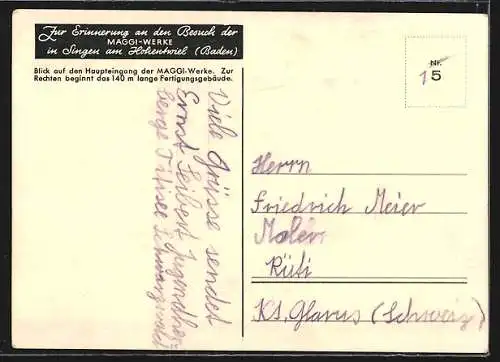 Zur Erinnerung an den Besuch der
MAGGI-WERKE
in Singen am Hohentwiel (Baden)
Blick auf den Haupteingang der MAGGI-Werke. Zur
Rechten beginnt das 140 m lange Fertigungsgebäude.
Viele Grüsse sendet
Ernst Seibert Jugendher
berge Titisee Schwarzwald
Nr.
15
Herrn
Friedrich Meier
Maler
Rüti
Kt. Glarus (Schweiz)